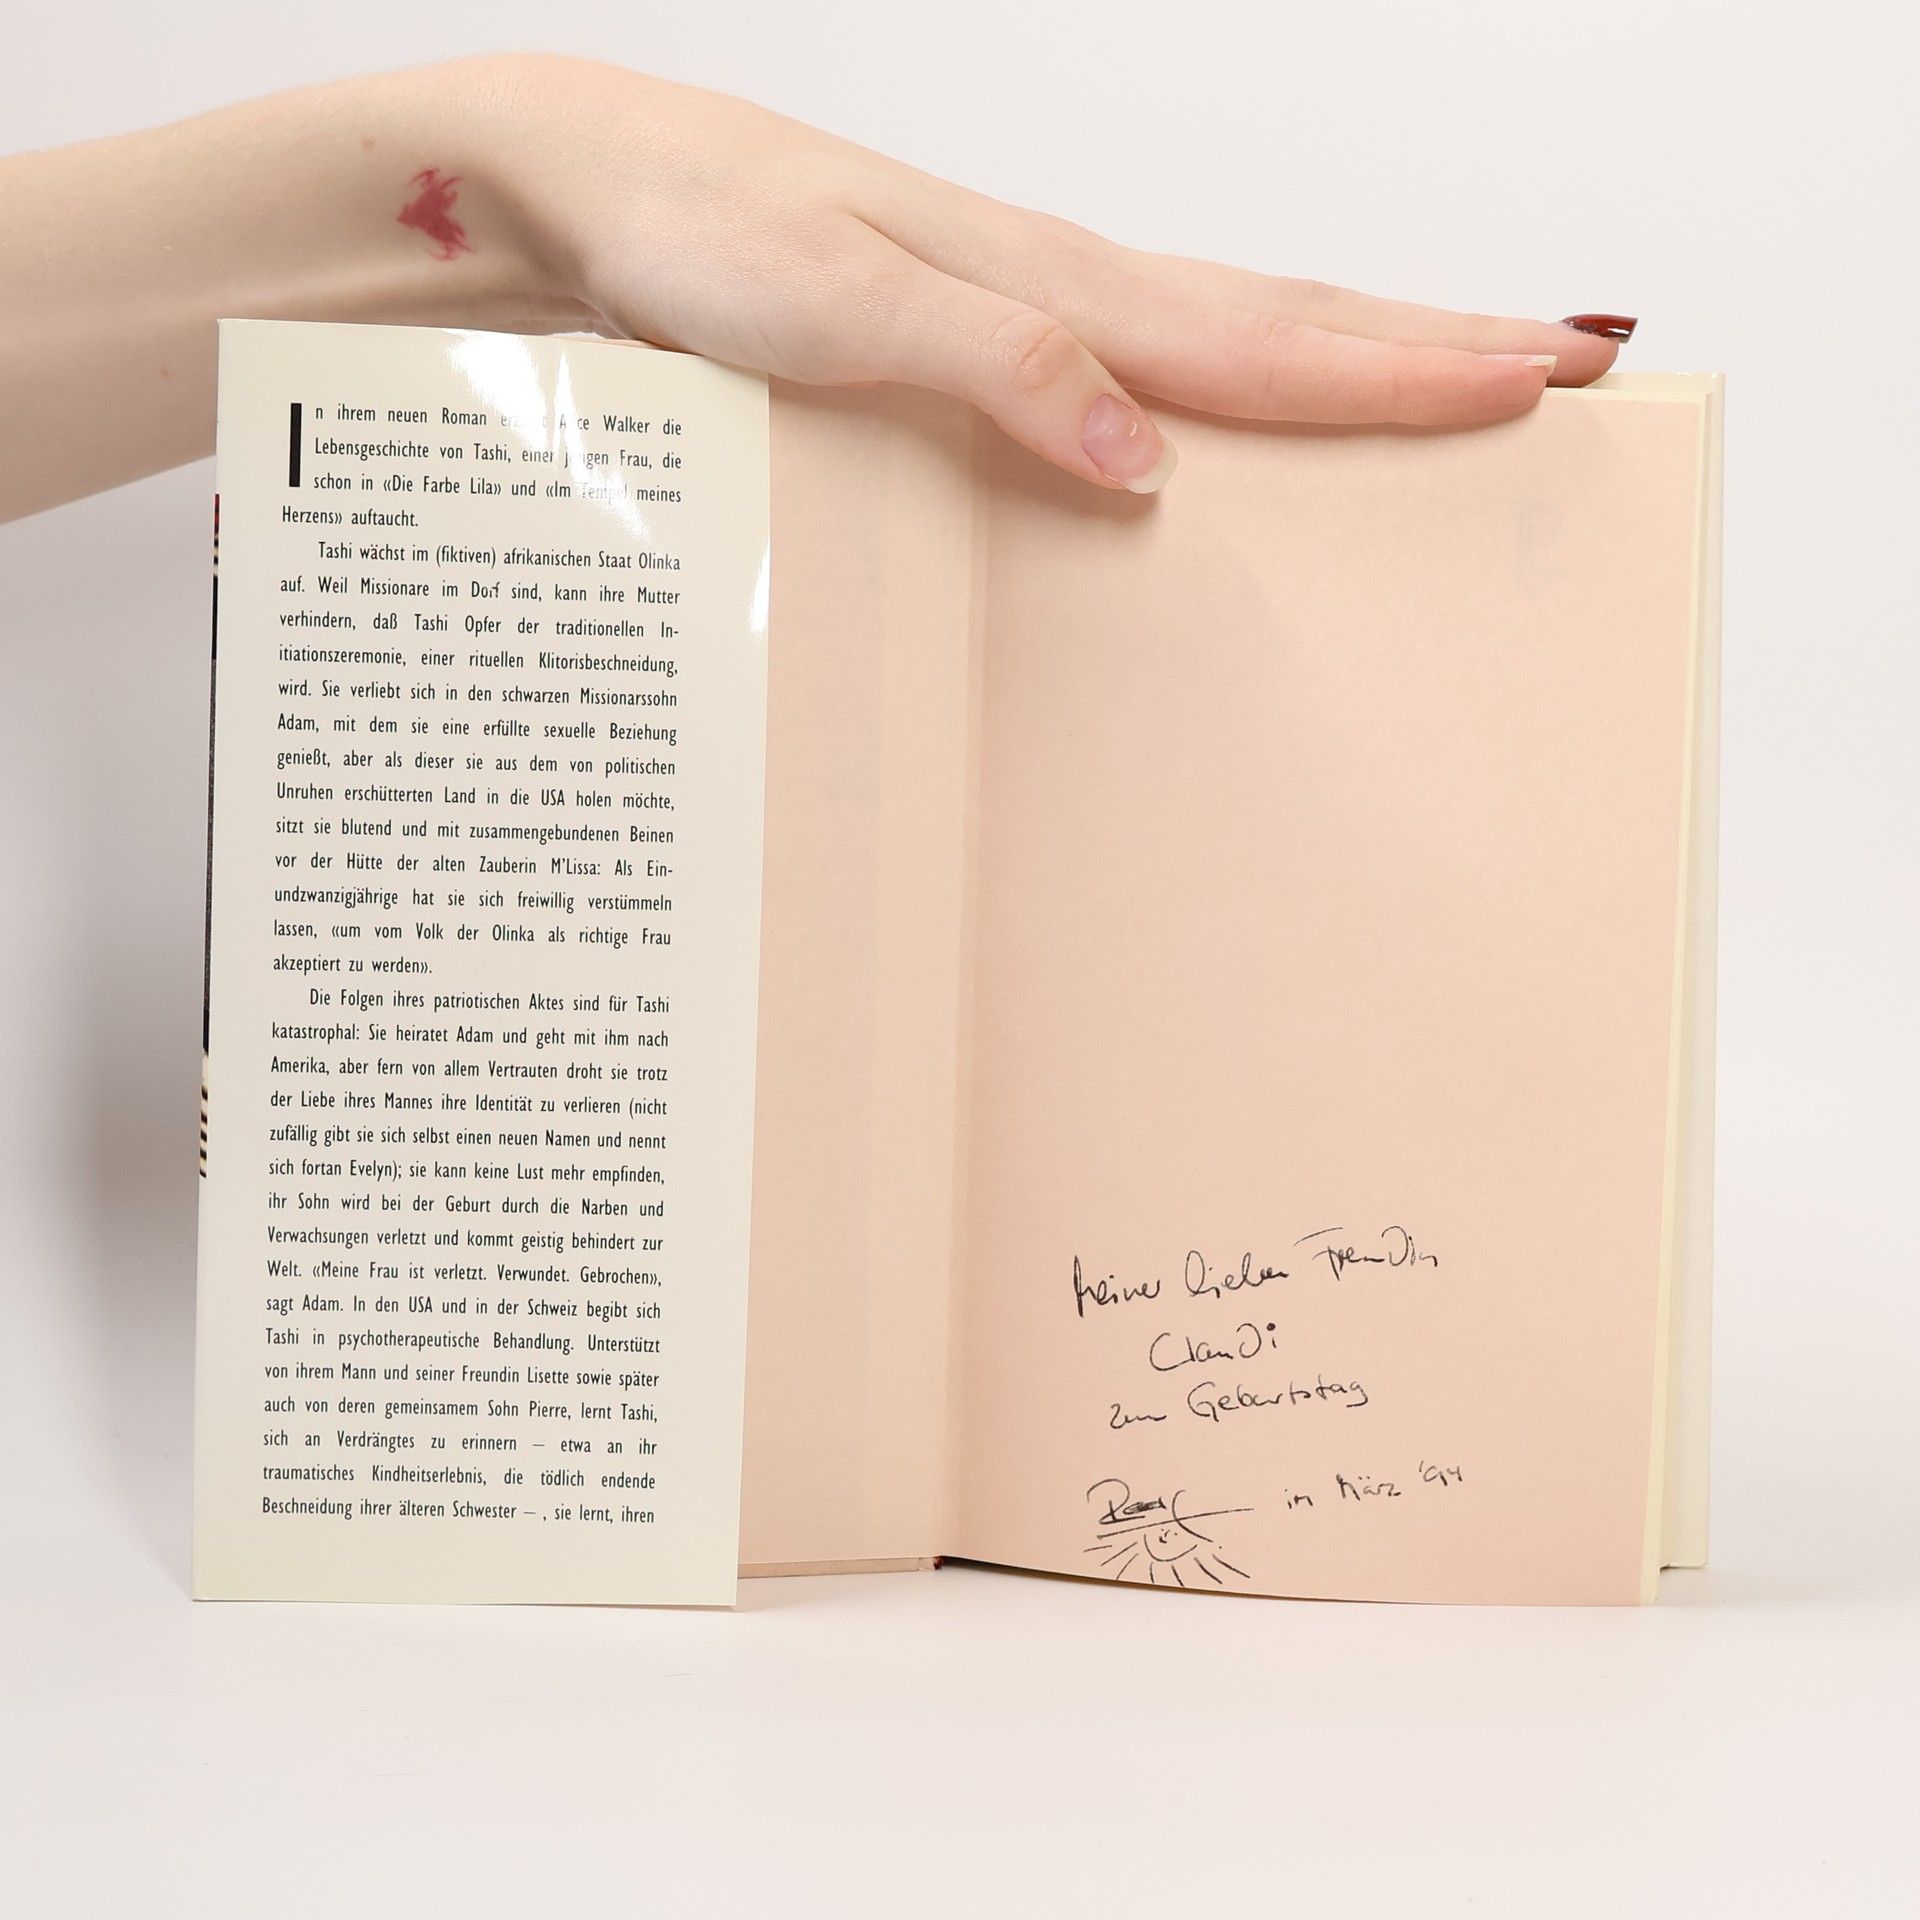 In ihrem neuen Roman erzählt Alice Walker die
Lebensgeschichte von Tashi, einer jungen Frau, die
schon in «Die Farbe Lila» und «Im Tempel meines
Herzens» auftaucht.
Tashi wächst im (fiktiven) afrikanischen Staat Olinka
auf. Weil Missionare im Dorf sind, kann ihre Mutter
verhindern, daß Tashi Opfer der traditionellen In-
itiationszeremonie, einer rituellen Klitorisbeschneidung,
wird. Sie verliebt sich in den schwarzen Missionarssohn
Adam, mit dem sie eine erfüllte sexuelle Beziehung
genießt, aber als dieser sie aus dem von politischen
Unruhen erschütterten Land in die USA holen möchte,
sitzt sie blutend und mit zusammengebundenen Beinen
vor der Hütte der alten Zauberin M'Lissa: Als Ein-
undzwanzigjährige hat sie sich freiwillig verstümmeln
lassen, «um vom Volk der Olinka als richtige Frau
akzeptiert zu werden».
Die Folgen ihres patriotischen Aktes sind für Tashi
katastrophal: Sie heiratet Adam und geht mit ihm nach
Amerika, aber fern von allem Vertrauten droht sie trotz
der Liebe ihres Mannes ihre Identität zu verlieren (nicht
zufällig gibt sie sich selbst einen neuen Namen und nennt
sich fortan Evelyn); sie kann keine Lust mehr empfinden,
ihr Sohn wird bei der Geburt durch die Narben und
Verwachsungen verletzt und kommt geistig behindert zur
Welt. «Meine Frau ist verletzt. Verwundet. Gebrochen»,
sagt Adam. In den USA und in der Schweiz begibt sich
Tashi in psychotherapeutische Behandlung. Unterstützt
von ihrem Mann und seiner Freundin Lisette sowie später
auch von deren gemeinsamem Sohn Pierre, lernt Tashi,
sich an Verdrängtes zu erinnern – etwa an ihr
traumatisches Kindheitserlebnis, die tödlich endende
Beschneidung ihrer älteren Schwester – , sie lernt, ihren
Meiner lieben Freundin
Claudi
zum Geburtstag
im März '94